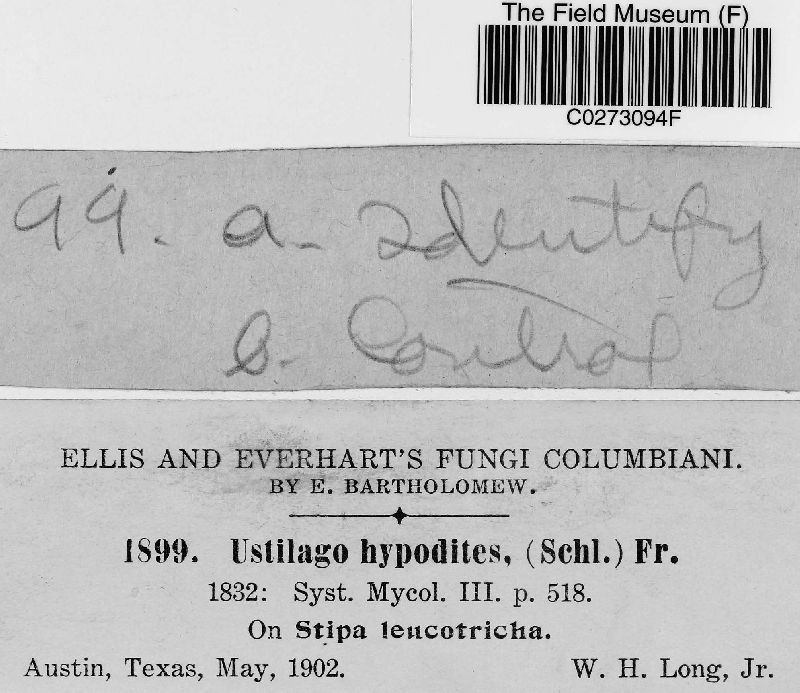 The Field Museum (F)
C0273094F
99. a. Identify
b. Control
ELLIS AND EVERHART'S FUNGI COLUMBIANI.
BY E. BARTHOLOMEW.
1899. Ustilago hypodites, (Schl.) Fr.
1832: Syst. Mycol. III. p. 518.
On Stipa leucotricha.
Austin, Texas, May, 1902. W. H. Long, Jr.